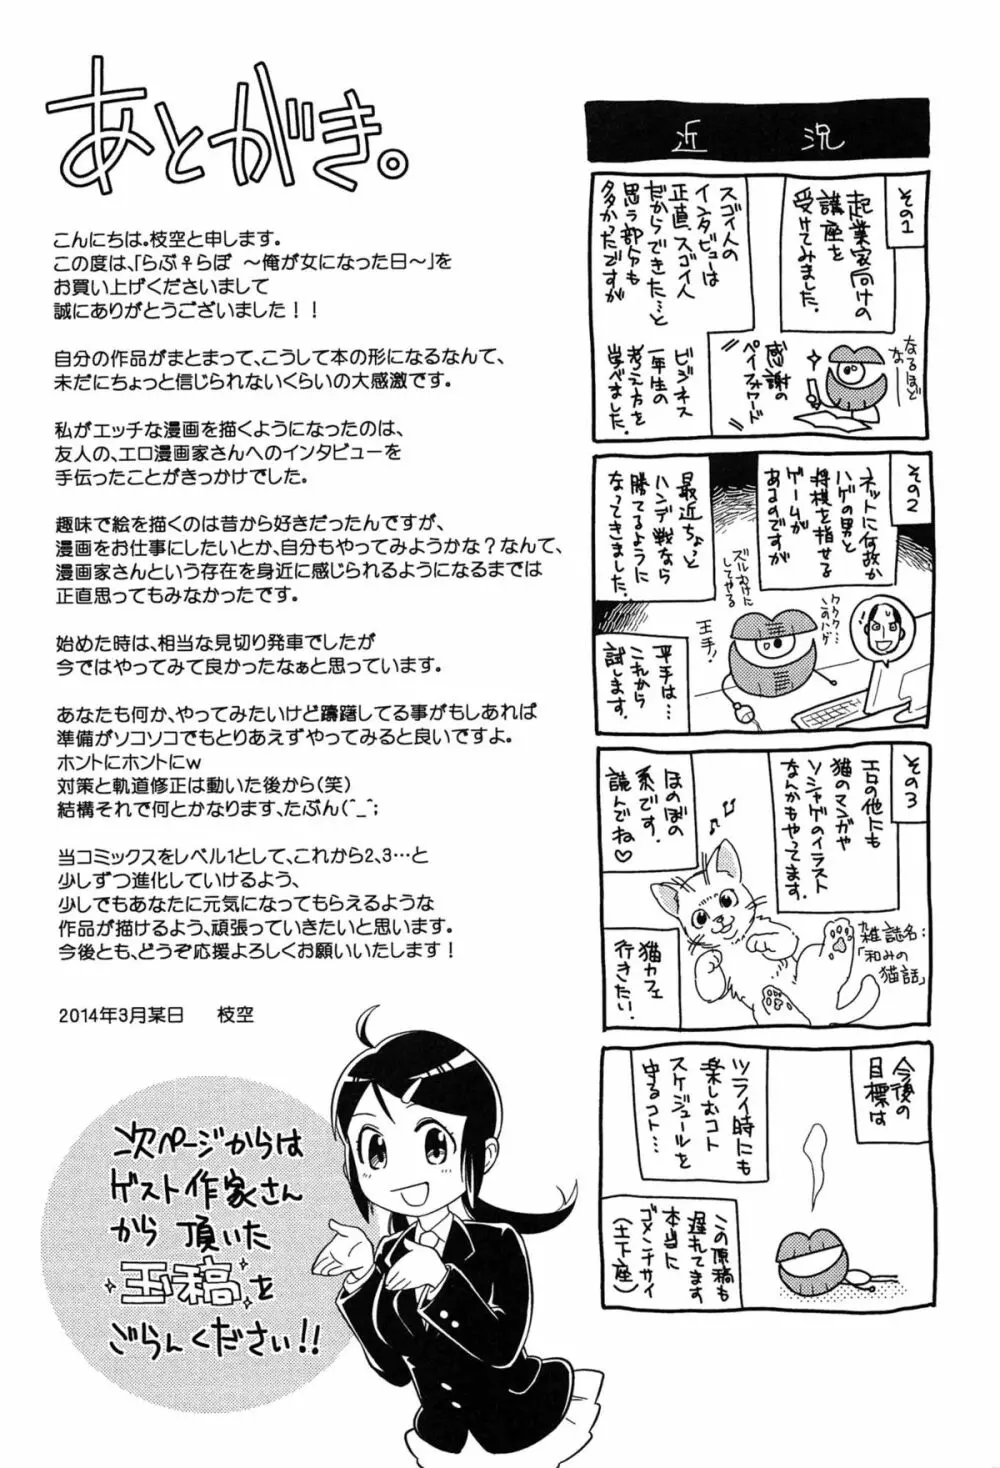 あとがき。
こんにちは。枝空と申します。
この度は、「らぶ♀らぼ ～俺が女になった日～」を
お買い上げくださいまして
誠にありがとうございました！！
自分の作品がまとまって、こうして本の形になるなんて、
未だにちょっと信じられないくらいの大感激です。
私がエッチな漫画を描くようになったのは、
友人の、エロ漫画家さんへのインタビューを
手伝ったことがきっかけでした。
趣味で絵を描くのは昔から好きだったんですが、
漫画をお仕事にしたいとか、自分もやってみようかな？なんて、
漫画家さんという存在を身近に感じられるようになるまでは
正直思ってもみなかったです。
始めた時は、相当な見切り発車でしたが
今ではやってみて良かったなぁと思っています。
あなたも何か、やってみたいけど躊躇してる事がもしあれば
準備がソコソコでもとりあえずやってみると良いですよ。
ホントにホントにw
対策と軌道修正は動いた後から(笑)
結構それで何とかなります、たぶん(^_^;
当コミックスをレベル1として、これから2、3…と
少しずつ進化していけるよう、
少しでもあなたに元気になってもらえるような
作品が描けるよう、頑張っていきたいと思います。
今後とも、どうぞ応援よろしくお願いいたします！
2014年3月某日 枝空
次ページからは
ゲスト作家さん
から頂いた
玉稿を
ごらんください!!
近況
その1
起業家向けの
講座を
受けてみました。
スゴイ人の
インタビューは
正直、スゴイ人
だからできた…と
思う部分も
多かったですが
なるほどなー
感謝の
ペイフォワード
ビジネス
一年生の
考え方を
学べました。
その2
ネットに何故か
ハゲの男と
将棋を指せる
ゲームが
あるのですが
最近ちょっと
ハンデ戦なら
勝てるように
なってきました。
ズルむけに
してやる
ククク…
このハゲ
王手！
平手は…
これから
試します。
その3
エロの他にも
猫のマンガや
ソシャゲのイラスト
なんかもやってます。
ほのぼの
系です。
読んでね♡
雑誌名：
「和みの
猫話」
猫カフェ
行きたい。
今後の
目標は
ツライ時にも
楽しむコト
スケジュールを
守るコト…
この原稿も
遅れてます
本当に
ゴメンチサイ
(土下座)